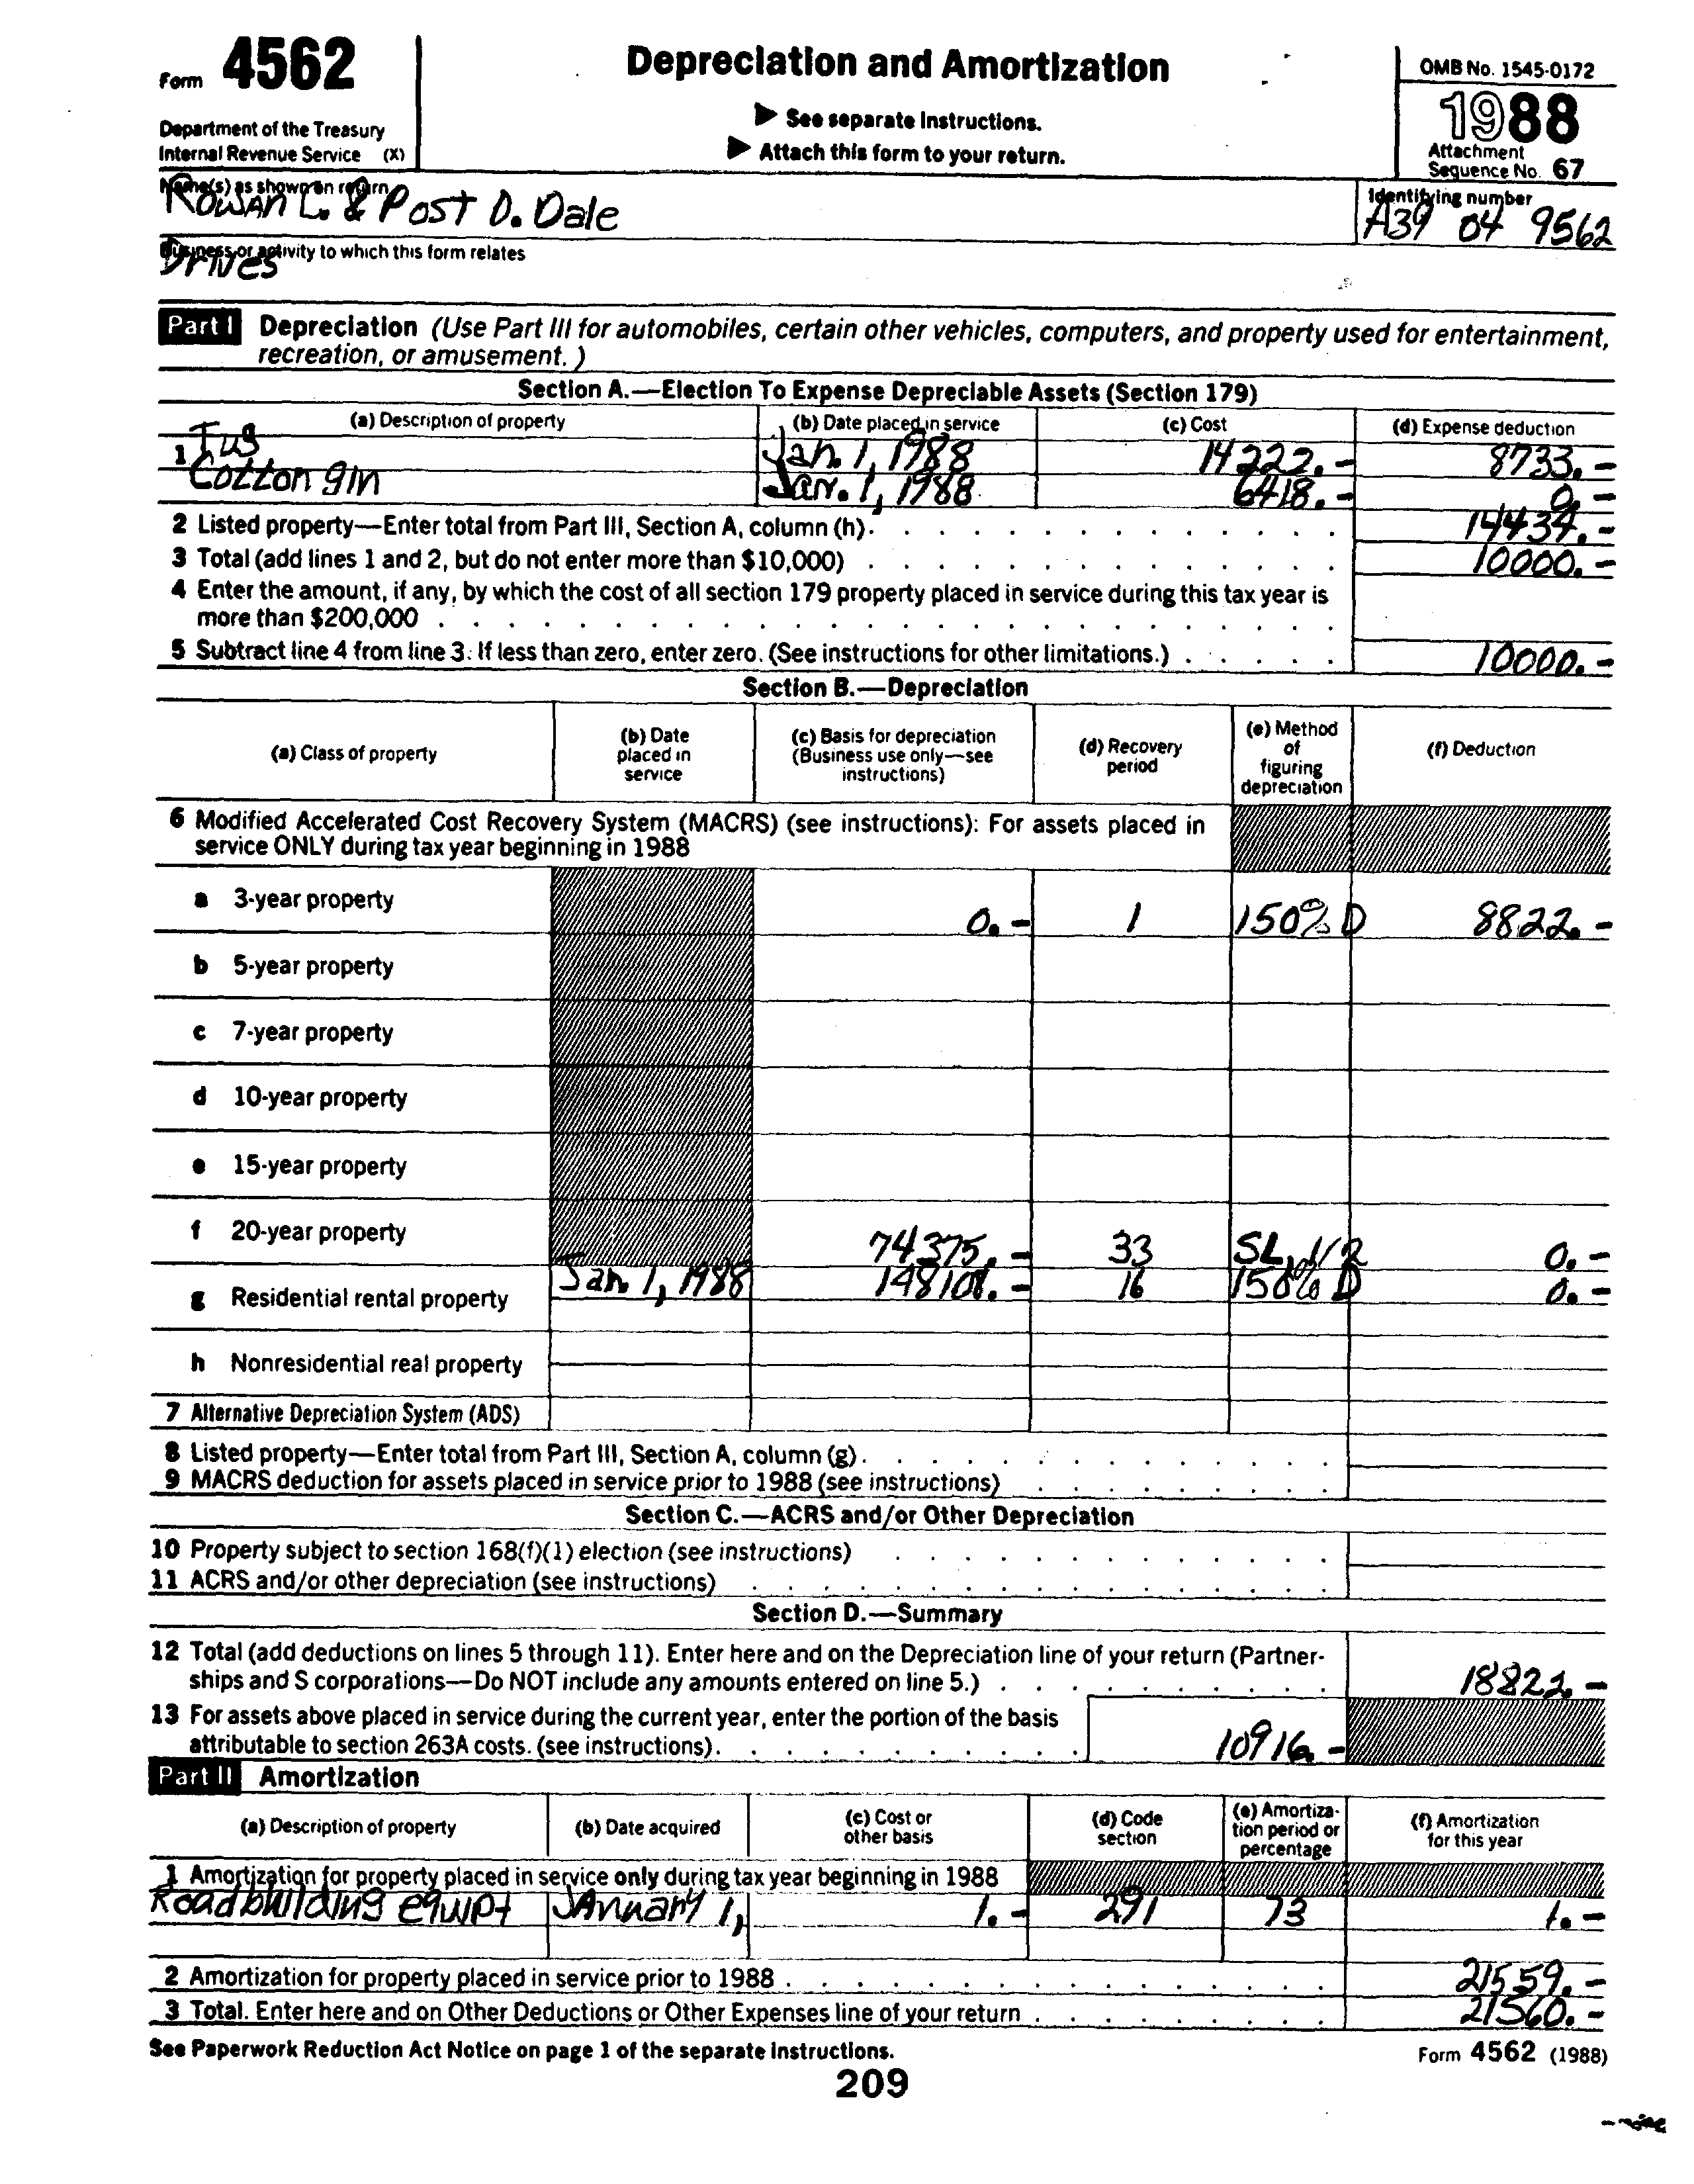 Form 4562
Depreciation and Amortization
OMB No. 1545-0172
1988
▶ See separate Instructions.
▶ Attach this form to your return.
Department of the Treasury
Internal Revenue Service (X)
Attachment
Sequence No. 67
Name(s) as shown on return
Rowan L. & Post D. Dale
Identifying number
A39 04 9562
Business or activity to which this form relates
Drives
Part I Depreciation (Use Part III for automobiles, certain other vehicles, computers, and property used for entertainment,
recreation, or amusement.)
Section A.—Election To Expense Depreciable Assets (Section 179)
(a) Description of property (b) Date placed in service (c) Cost (d) Expense deduction
1 Tug Jan. 1, 1988 14222.- 8733.-
Cotton gin Jan. 1, 1988 6418.- 0.-
2 Listed property—Enter total from Part III, Section A, column (h). 14434.-
3 Total (add lines 1 and 2, but do not enter more than $10,000) 10000.-
4 Enter the amount, if any, by which the cost of all section 179 property placed in service during this tax year is
more than $200,000
5 Subtract line 4 from line 3. If less than zero, enter zero. (See instructions for other limitations.) 10000.-
Section B.—Depreciation
(a) Class of property (b) Date placed in service (c) Basis for depreciation (Business use only—see instructions) (d) Recovery period (e) Method of figuring depreciation (f) Deduction
6 Modified Accelerated Cost Recovery System (MACRS) (see instructions): For assets placed in
service ONLY during tax year beginning in 1988
a 3-year property 0.- 1 150% D 8822.-
b 5-year property
c 7-year property
d 10-year property
e 15-year property
f 20-year property 74375.- 33 SL, 0.-
g Residential rental property Jan. 1, 1988 148108.- 16 150% D 0.-
h Nonresidential real property
7 Alternative Depreciation System (ADS)
8 Listed property—Enter total from Part III, Section A, column (g).
9 MACRS deduction for assets placed in service prior to 1988 (see instructions)
Section C.—ACRS and/or Other Depreciation
10 Property subject to section 168(f)(1) election (see instructions)
11 ACRS and/or other depreciation (see instructions)
Section D.—Summary
12 Total (add deductions on lines 5 through 11). Enter here and on the Depreciation line of your return (Partner-
ships and S corporations—Do NOT include any amounts entered on line 5.) 18822.-
13 For assets above placed in service during the current year, enter the portion of the basis
attributable to section 263A costs. (see instructions). 10916.-
Part II Amortization
(a) Description of property (b) Date acquired (c) Cost or other basis (d) Code section (e) Amortiza-tion period or percentage (f) Amortization for this year
1 Amortization for property placed in service only during tax year beginning in 1988
Roadbuilding equipt January 1, 1.- 291 73 1.-
2 Amortization for property placed in service prior to 1988 21559.-
3 Total. Enter here and on Other Deductions or Other Expenses line of your return 21560.-
See Paperwork Reduction Act Notice on page 1 of the separate instructions.
Form 4562 (1988)
209